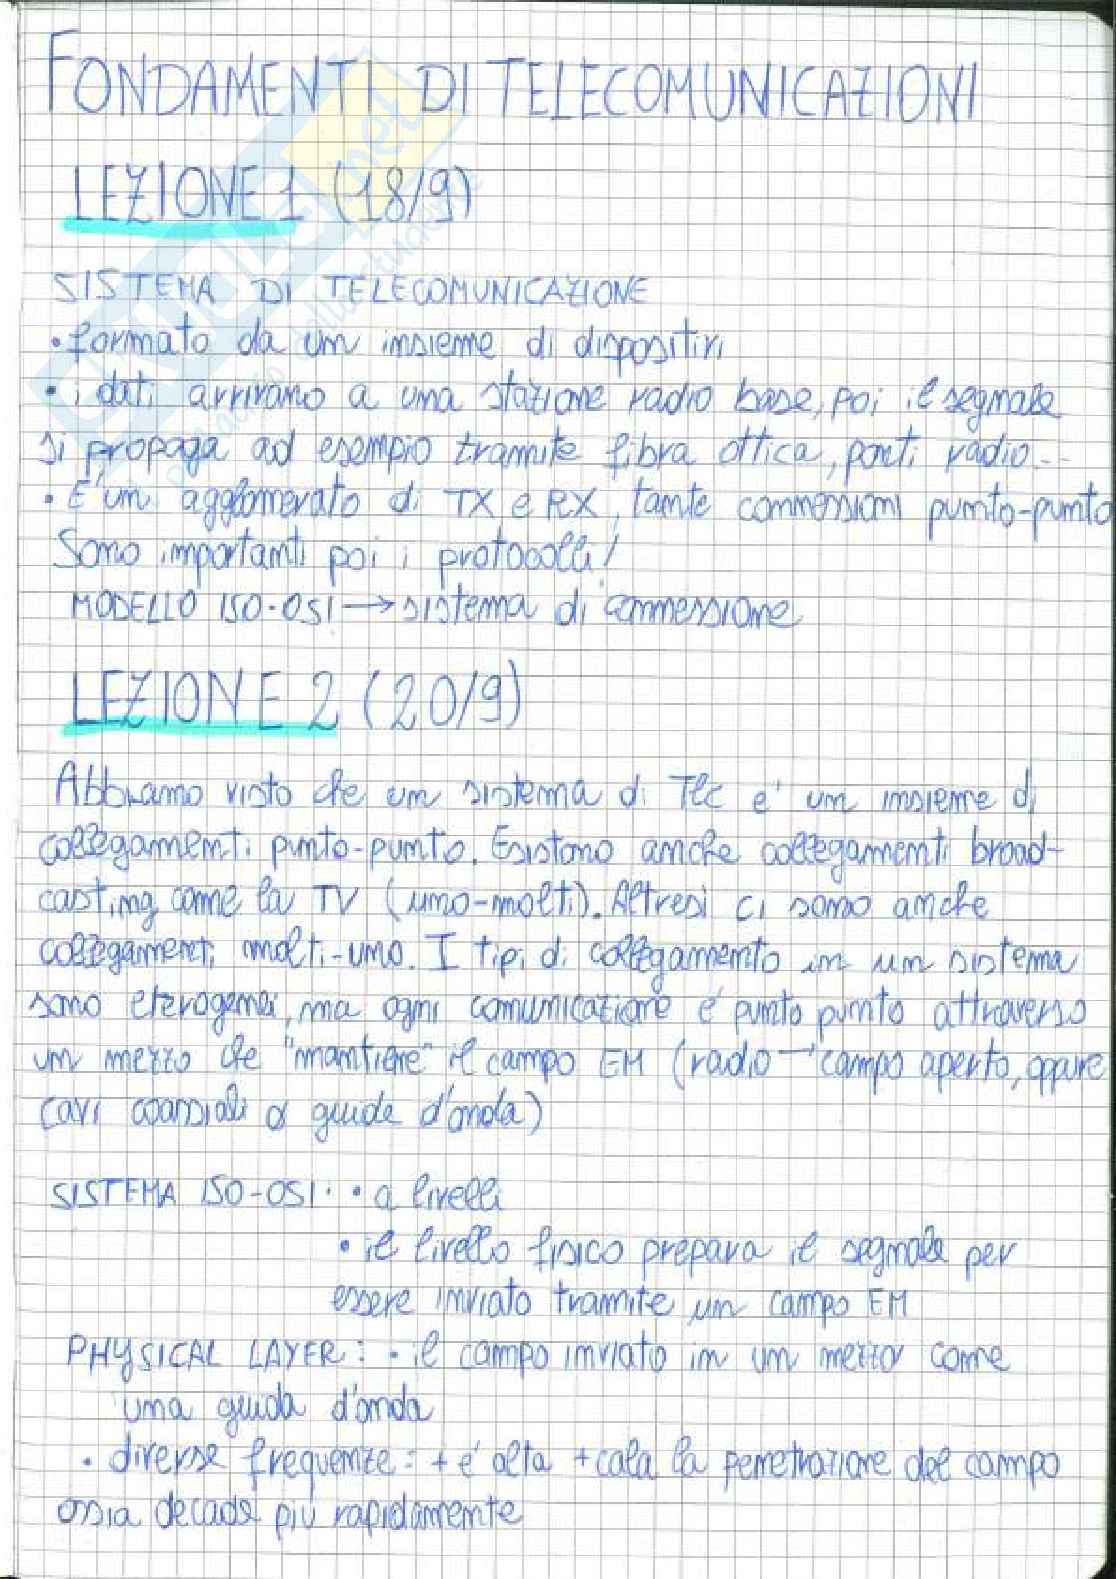 FONDAMENTI DI TELECOMUNICAZIONI
LEZIONE 1 (18/9)
SISTEMA DI TELECOMUNICAZIONE
• formato da un insieme di dispositivi
• i dati arrivano a una stazione radio base, poi il segnale
si propaga ad esempio tramite fibra ottica, ponti radio...
• E' un agglomerato di TX e RX, tante connessioni punto-punto
Sono importanti poi i protocolli!
MODELLO ISO-OSI → sistema di connessione
LEZIONE 2 (20/9)
Abbiamo visto che un sistema di Tlc e' un insieme di
collegamenti punto-punto. Esistono anche collegamenti broad-
casting come la TV (uno-molti). Altresì ci sono anche
collegamenti molti-uno. I tipi di collegamento in un sistema
sono eterogenei, ma ogni comunicazione é punto punto attraverso
un mezzo che "mantiene" il campo EM (radio → campo aperto, oppure
cavi coassiali o guide d'onda)
SISTEMA ISO-OSI: • a livelli
• il livello fisico prepara il segnale per
essere inviato tramite un campo EM
PHYSICAL LAYER: • il campo inviato in un mezzo come
una guida d'onda
• diverse frequenze: + é alta + cala la penetrazione del campo
ossia decade più rapidamente